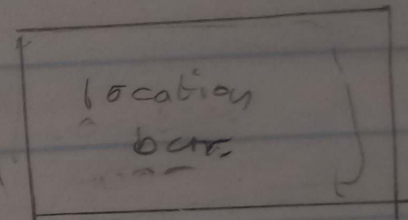 location
bar